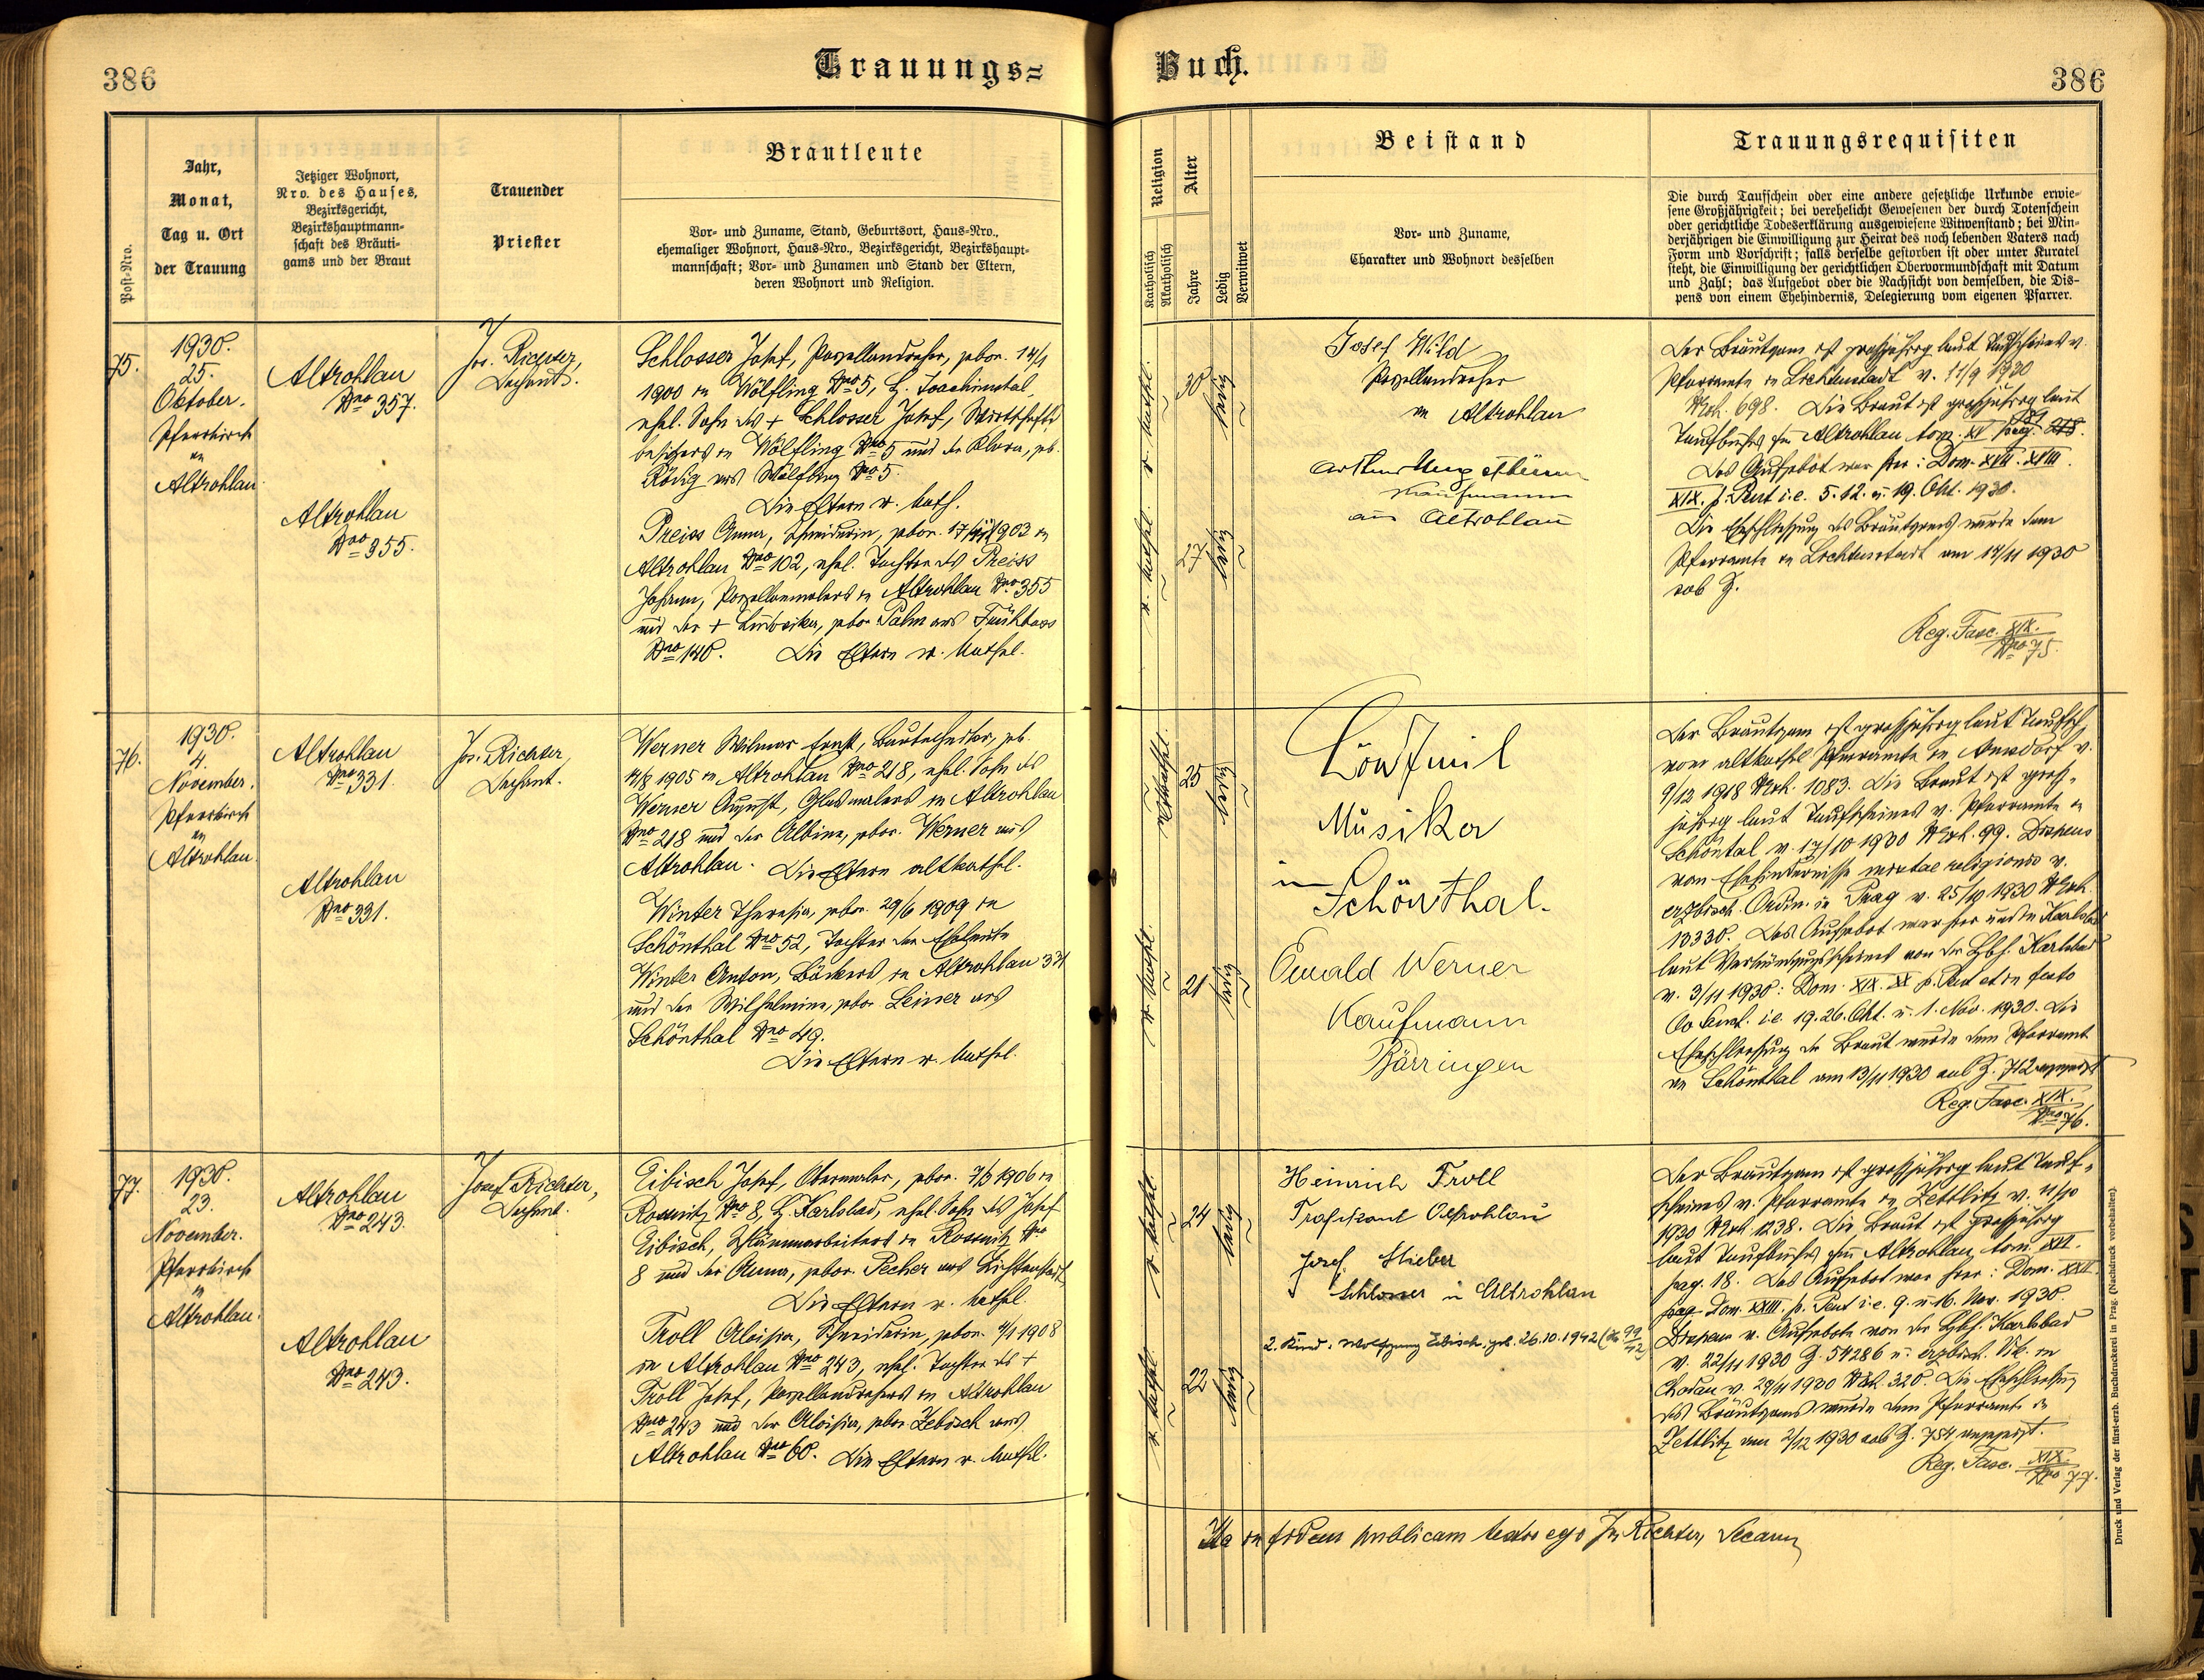 386
Trauungs=
Buch.
386
Post-Nro.
Jahr,
Monat,
Tag u. Ort
der Trauung
Jetziger Wohnort,
Nro. des Hauses,
Bezirksgericht,
Bezirkshauptmann-
schaft des Bräuti-
gams und der Braut
Trauender
Priester
Brautleute
Vor- und Zuname, Stand, Geburtsort, Haus-Nro.,
ehemaliger Wohnort, Haus-Nro., Bezirksgericht, Bezirkshaupt-
mannschaft; Vor- und Zunamen und Stand der Eltern,
deren Wohnort und Religion.
Religion
Katholisch
Akatholisch
Alter
Jahre
Ledig
Verwitwet
Beistand
Vor- und Zuname,
Charakter und Wohnort desselben
Trauungsrequisiten
Die durch Taufschein oder eine andere gesetzliche Urkunde erwie-
sene Großjährigkeit; bei verehelicht Gewesenen der durch Totenschein
oder gerichtliche Todeserklärung ausgewiesene Witwenstand; bei Min-
derjährigen die Einwilligung zur Heirat des noch lebenden Vaters nach
Form und Vorschrift; falls derselbe gestorben ist oder unter Kuratel
steht, die Einwilligung der gerichtlichen Obervormundschaft mit Datum
und Zahl; das Aufgebot oder die Nachsicht von demselben, die Dis-
pens von einem Ehehindernis, Delegierung vom eigenen Pfarrer.
75.
1930.
25.
Oktober.
Pfarrkirche
in
Altrohlau.
Altrohlau
Nro 357.
Altrohlau
Nro 355.
Jos. Richter,
Dechant.
Schlosser Josef, Porzellandreher, gebor. 14/1
1900 in Wölfling Nro 5, B. Joachimstal,
ehel. Sohn des + Schlosser Josef, Wirtschafts-
besitzers in Wölfling Nro 5 und der Klara, geb.
Rödig aus Wölfling Nro 5.
Die Eltern r. kath.
Preiss Anna, Schneiderin, gebor. 1903 in
Altrohlau Nro 102, ehel. Tochter des Preiss
Johann, Porzellanmalers in Altrohlau Nro 355
und der + gebor. Palm aus Fischbach
Nro 140. Die Eltern r. kathol.
r. kathol.
30
ledig
r. kathol.
27
ledig
Josef Wild
Porzellandreher
in Altrohlau
Arthur
Kaufmann
aus Altrohlau
Der Bräutigam ist grossjährig laut Taufscheines v.
Pfarramte in Lichtenstadt v. 11/9 1930
NExh. 698. Die Braut ist grossjährig laut
Taufbuches für Altrohlau tom. XV pag.
Das Aufgebot war hier: Dom. XVII. XVIII.
XIX. p. Pent i.e. 5. 12. u. 19. Okt. 1930.
Die Eheschliessung des Bräutigams wurde dem
Pfarramte in Lichtenstadt am 14/11 1930
sub Z.
Reg. Fasc. XIX.
Nro 75.
76.
1930.
4.
November.
Pfarrkirche
in
Altrohlau.
Altrohlau
Nro 331.
Altrohlau
Nro 331.
Jos. Richter,
Dechant.
Werner Wilmar Ernst, Bautechniker, geb.
1905 in Altrohlau Nro 218, ehel. Sohn des
Werner August, Glasmalers in Altrohlau
Nro 218 und der Albine, gebor. Werner aus
Altrohlau. Die Eltern altkathol.
Winter Theresia, gebor. 29/6 1909 in
Schönthal Nro 52, Tochter der Eheleute
Winter Anton, Bäckers in Altrohlau 331
und der Wilhelmine, gebor. Leiner aus
Schönthal Nro 49.
Die Eltern r. kathol.
altkathol.
25
ledig
r. kathol.
21
ledig
Löw Emil
Musiker
in
Schönthal.
Ewald Werner
Kaufmann
Bärringen
Der Bräutigam ist grossjährig laut Taufsch.
vom altkathol. Pfarramte in Arnsdorf v.
9/12 1918 NExh. 1083. Die Braut ist gross-
jährig laut Taufscheines v. Pfarramte in
Schöntal v. 17/10 1930 NExh. 99. Dispens
vom Ehehindernisse mixtae religionis v.
erzbisch. Ordin. in Prag v. 25/10 1930 NExh.
13330. Das Aufgebot war hier und in Karlsbad
laut Verkündigungsscheines von der Karlsbad
v. 3/11 1930: Dom. XIX. XX p. Pent et in festo
Oo Sanct. i.e. 19. 26. Okt. u. 1. Nov. 1930. Die
Eheschliessung der Braut wurde dem Pfarramte
in Schönthal am 13/11 1930 sub Z. 712 angezeigt
Reg. Fasc. XIX.
Nro 76.
77.
1930.
23.
November.
Pfarrkirche
in
Altrohlau.
Altrohlau
Nro 243.
Altrohlau
Nro 243.
Josef Richter,
Dechant.
Eibisch Josef, Obermaler, gebor. 1906 in
Rossnitz Nro 8, B. Karlsbad, ehel. Sohn des Josef
Eibisch, in Rossnitz Nro
8 und der Anna, gebor. Pecher aus Lichtenstadt
Die Eltern r. kathol.
Troll Aloisia, Schneiderin, gebor. 4/1 1908
in Altrohlau Nro 243, ehel. Tochter des +
Troll Josef, Porzellandrehers in Altrohlau
Nro 243 und der Aloisia, gebor. Zebisch aus
Altrohlau Nro 60. Die Eltern r. kathol.
r. kathol.
24
ledig
r. kathol.
22
ledig
Heinrich Troll
Trafikant Altrohlau
Josef Stieber
Schlosser in Altrohlau
2. Kind: Wolfgang Eibisch, geb. 26.10.1942
Der Bräutigam ist grossjährig laut Tauf-
scheines v. Pfarramte in Zettlitz v. 11/10
1930 NExh. 1238. Die Braut ist grossjährig
laut Taufbuches für Altrohlau tom. XVI.
pag. 18. Das Aufgebot war hier: Dom. XXII.
Dom. XXIII. p. Pent i.e. 9. u. 16. Nov. 1930.
Dispens v. Aufgebote von der Karlsbad
v. 22/11 1930 Z. 54286 u. erzbisch. Vik. in
Chodau v. 1930 NExh. 320. Die Eheschliessung
des Bräutigams wurde dem Pfarramte in
Zettlitz am 2/12 1930 sub Z. 754 angezeigt.
Reg. Fasc. XIX.
Nro 77.
Ita in fidem publicam testor ego Jos. Richter, Decanus
Druck und Verlag der fürst-erzb. Buchdruckerei in Prag. (Nachdruck vorbehalten).